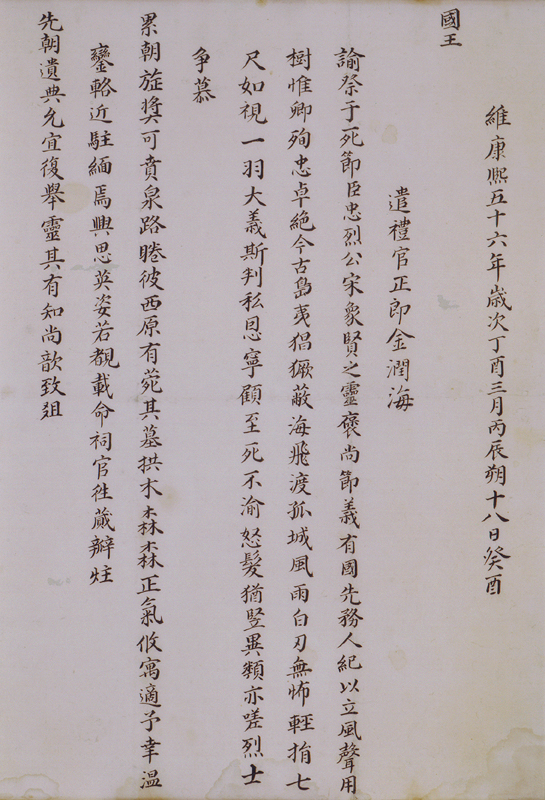 維康熙五十六年歲次丁酉三月丙辰朔十八日癸酉
國王
遣禮官正郎金潤海
諭祭于死節臣忠烈公宋象賢之靈褒尚節義有國先務人紀以立風聲用
樹惟卿殉忠卓絶今古島夷猖獗蔽海飛渡孤城風雨白刃無怖輕捐七
尺如視一羽大義斯判私恩寧顧至死不渝怒髮猶竪異類亦嗟烈士
争慕
累朝旌奬可賁泉路睠彼西原有菀其墓拱木森森正氣攸寓適予幸温
鑾輅近駐緬焉興思英姿若覩載命祠官徃蕆瓣炷
先朝遺典允宜復舉靈其有知尚歆致俎